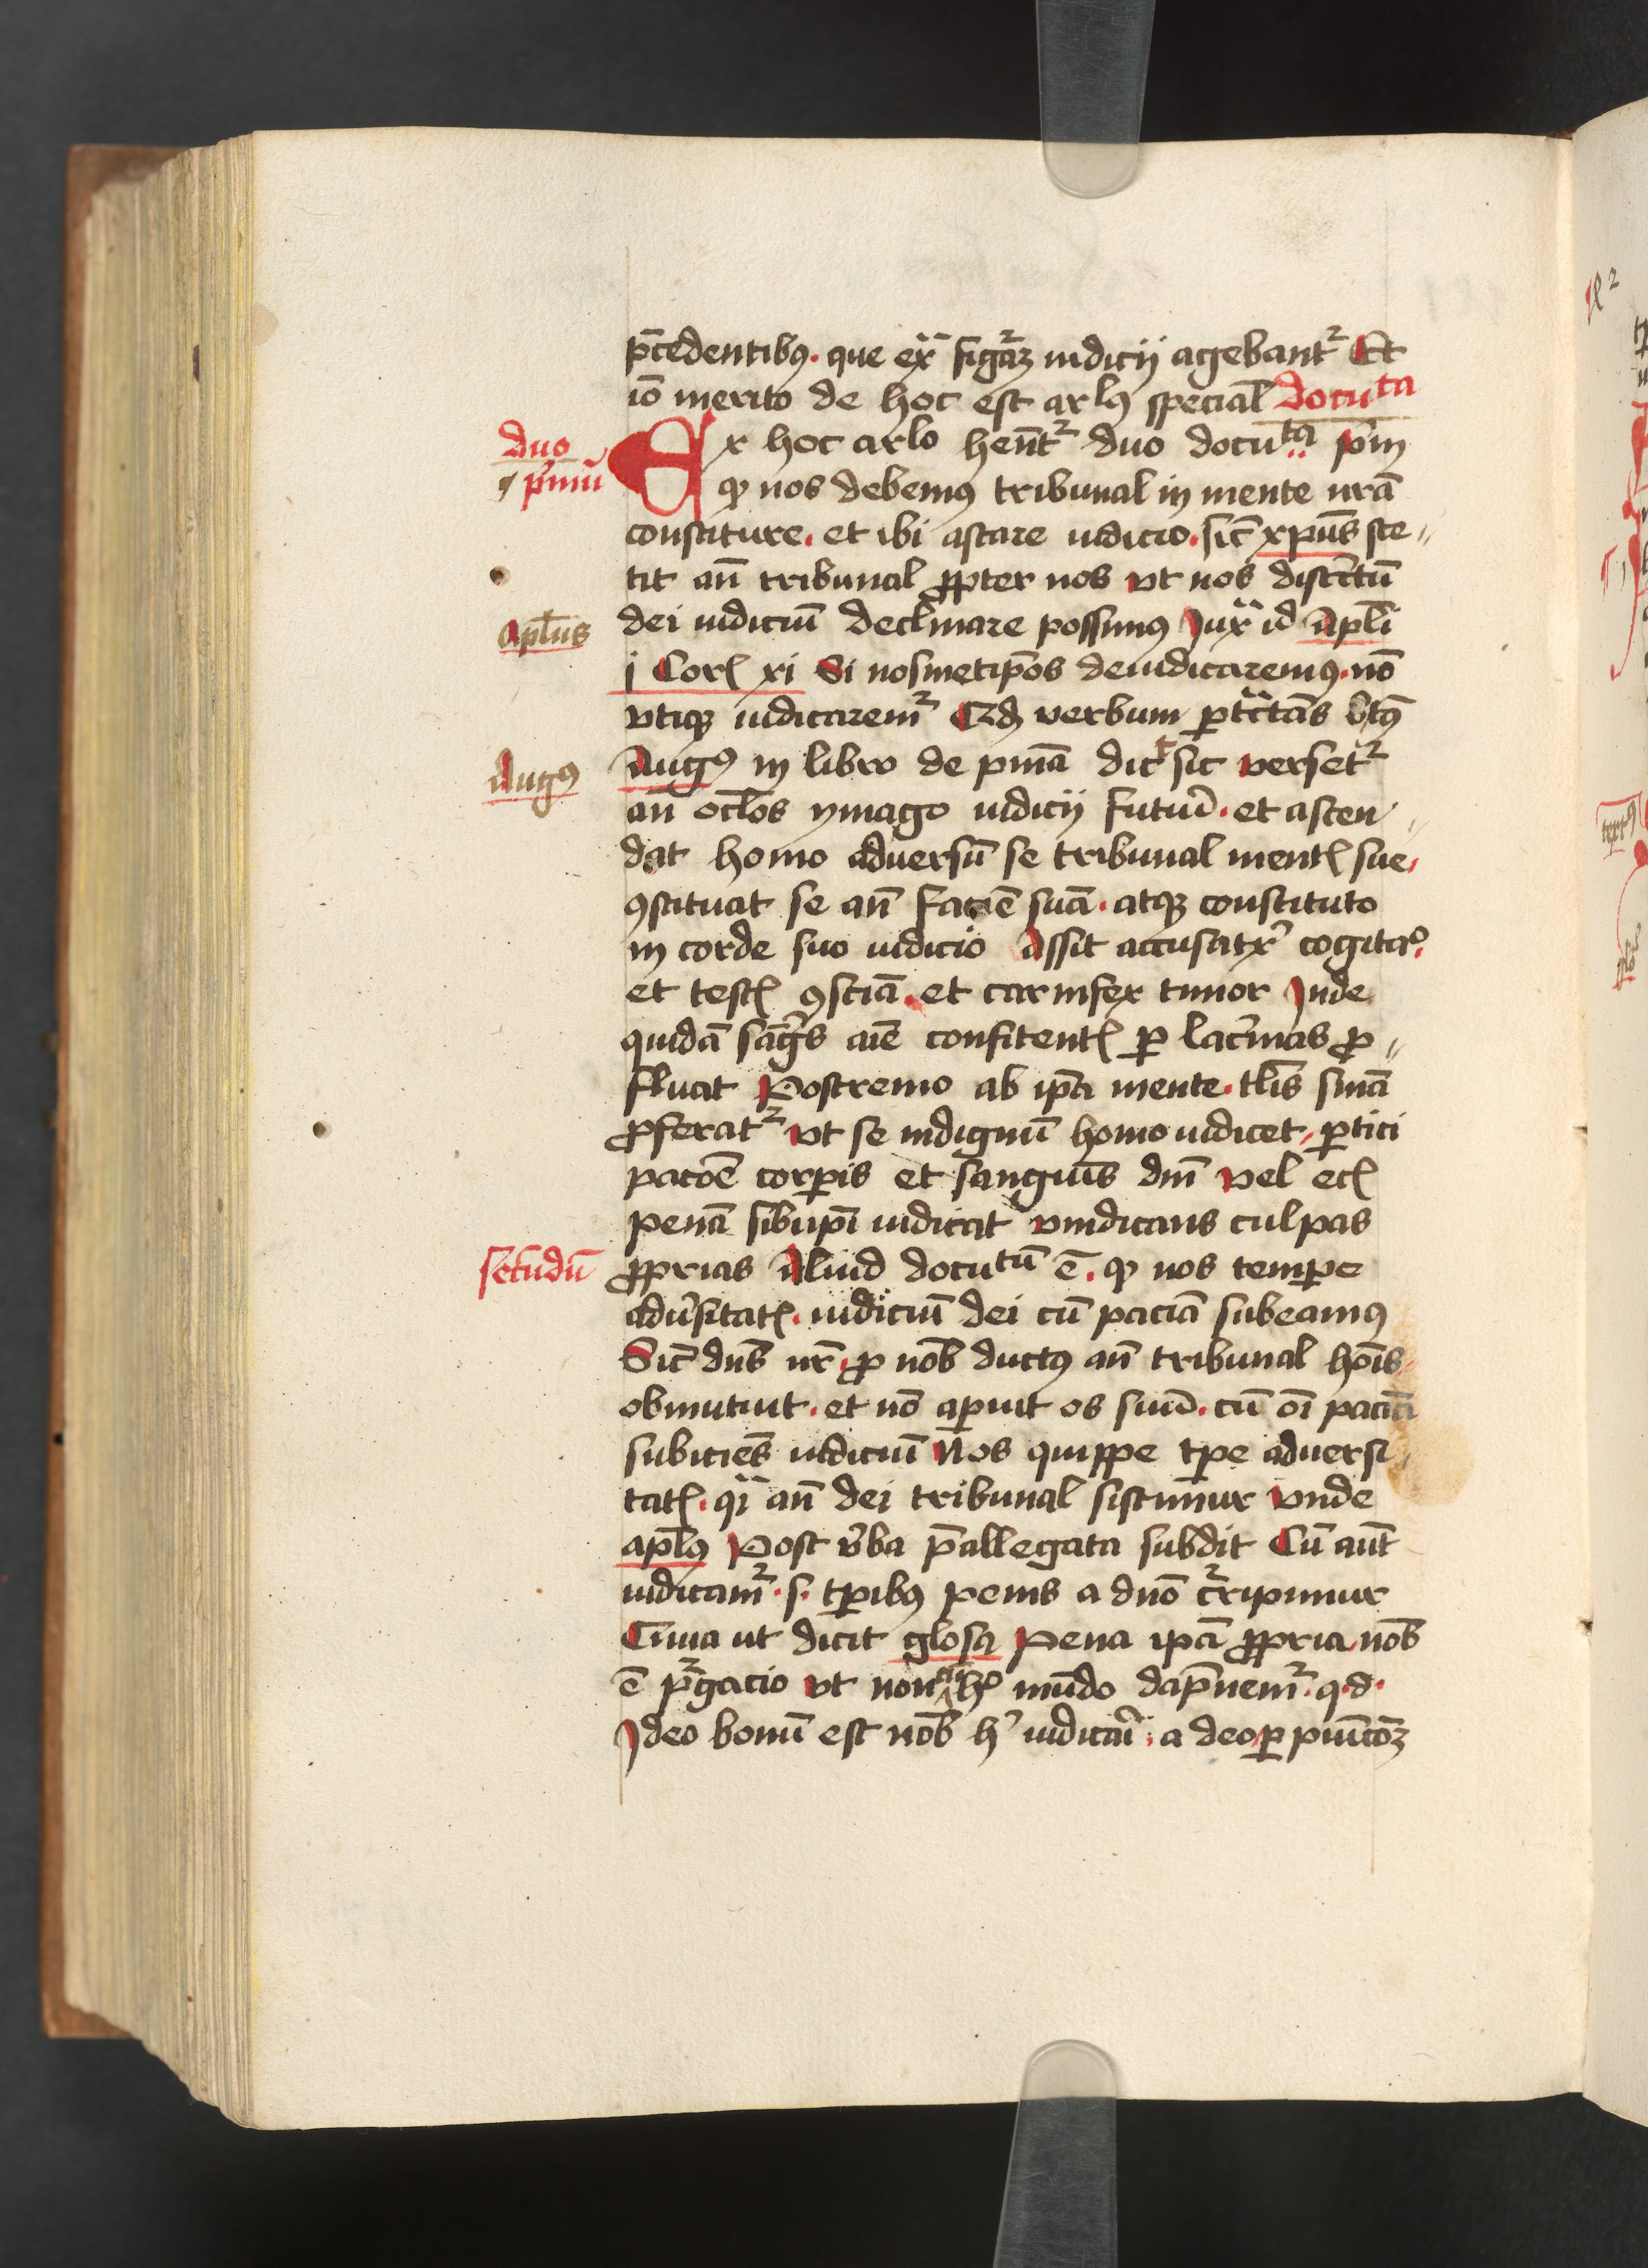 p̄cedentibꝫ. que exͣ figᷓaꝫ iudicij agebantᷣ Et
iō merito de hoc est arlꝰ special̄ docuᵗᵃ
duo
Ex hoc arlo hēntᷣ duo docuᵗᵃ p̄m
p̄mū
ꝙ nos debemꝰ tribunal in mente nr̄a
constiture. et ibi astare iudicio. sic̄ xpūs ste〃
tit an̄ tribunal ꝓpter nos vt nos districtū
aplūs
dei iudiciū declinare possimꝰ Juxͣ id Apl̄i
j Corꝭ xj Si nosmetip̄os deiudicaremꝰ. nō
vtiqꝫ iudicaremᷣ Qd verbum ꝑtͣctās btꝰ
Augꝰ
Augꝰ in libro de pnīa dic̄ sic versetᷣ
an̄ oclōs ymago iudicij futurͥ. et ascen〃
dat homo aduersū se tribunal mentꝭ sue.
ꝯstituat se an̄ faciē suā. atqꝫ constituto
in corde suo iudicio Assit accusatxͥ cogitaᵒ.
et testꝭ ꝯsciā. et carnifex timor Jnde
quidā sāgͥs aīe confitentꝭ ꝑ lacͥmas ꝓ〃
fluat Postremo ab ip̄a mente. tlīs snīa
ꝓferatᷣ vt se indignū homo iudicet, ꝑtici
pacōe corꝑis et sanguīs dnī vel ecꝭ
penā sibiip̄i iudicat vindicans culpas
secūdū
ꝓprias Aliud docuᵗᵘ̄ ē. ꝙ nos temꝑe
adūsitatꝭ. iudiciū dei cū paciā subeamꝰ
Sic̄ dn̄s nr̄. ꝓ nob̄ ductꝰ an̄ tribunal hoīs.
obmutuit. et nō aꝑuit os suū. cū oī paciā
subiciēs iudiciū Nos quippe tꝑe aduersi〃
tatꝭ. qͣi an̄ dei tribunal sistimur vnde
aplꝰ Post v̄ba p̄allegata subdit Cū aūt
iudicamᷣ. s. tꝑibꝫ penis a dnō cᷣripimur
vt dicit glosa Pena ip̄a ꝓpria nob̄
ē pᷣgacio vt non cū hᵒ mūdo dāpnemᷣ. q. d.
Jdeo bonū est nob̄ hͥ iudicarͥ. a deo ꝑ punicōꝫ